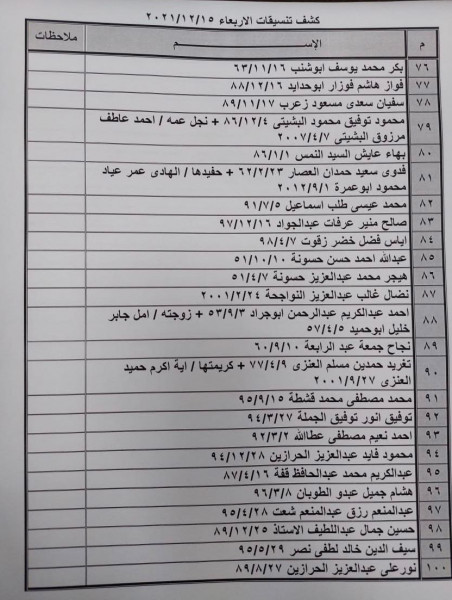 كشف تنسيقات الاربعاء ٢٠٢١/١٢/١٥
م الإســــــم ملاحظات
٧٦ بكر محمد يوسف ابوشنب ٦٣/١١/١٦
٧٧ فواز هاشم فوزار ابوحدايد ٨٨/١٢/١٦
٧٨ سفيان سعدى مسعود زعرب ٨٩/١١/١٧
٧٩ محمود توفيق محمود البشيتى ٨٦/١٢/٤ + نجل عمه / احمد عاطف
مرزوق البشيتى ٢٠٠٧/٤/٧
٨٠ بهاء عايش السيد النمس ٨٦/١/١
٨١ فدوى سعيد حمدان العصار ٦٢/٢/٢٣ + حفيدها / الهادى عمر عياد
محمود ابوعمرة ٢٠١٢/٩/١
٨٢ محمد عيسى طلب اسماعيل ٩١/٧/٥
٨٣ صالح منير عرفات عبدالجواد ٩٧/١٢/١٦
٨٤ اياس فضل خضر زقوت ٩٨/٤/٧
٨٥ عبدالله احمد حسن حسونة ٥١/١٠/١٠
٨٦ هيجر محمد عبدالعزيز حسونة ٥١/٤/٧
٨٧ نضال غالب عبدالعزيز النواجحة ٢٠٠١/٢/٢٤
٨٨ احمد عبدالكريم عبدالرحمن ابوجراد ٥٣/٩/٣ + زوجته / امل جابر
خليل ابوحميد ٥٧/٤/٥
٨٩ نجاح جمعة عبد الرابعة ٦٠/٩/١٠
٩٠ تغريد حمدين مسلم العنزى ٧٧/٤/٩ + كريمتها / اية اكرم حميد
العنزى ٢٠٠١/٩/٢٧
٩١ محمد مصطفى محمد قشطة ٩٥/٩/١٥
٩٢ توفيق انور توفيق الجملة ٩٤/٣/٢٧
٩٣ احمد نعيم مصطفى عطاالله ٩٢/٣/٢
٩٤ محمود فايد عبدالعزيز الحرازين ٩٤/١٢/٢٨
٩٥ عبدالكريم محمد عبدالحافظ قفة ٨٧/٤/١٦
٩٦ هشام جميل عبدو الطوبان ٩٦/٣/٨
٩٧ عبدالمنعم رزق عبدالمنعم شعت ٩٥/٤/٢٨
٩٨ حسين جمال عبداللطيف الاستاذ ٨٩/١٢/٢٥
٩٩ سيف الدين خالد لطفى نصر ٩٥/٥/٢٩
١٠٠ نورعلى عبدالعزيز الحرازين ٨٩/٨/٢٧